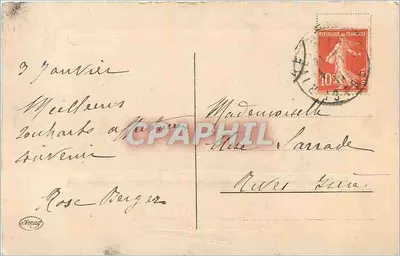 3 Janvier
Meilleurs
souhaits affectueux
souvenir
Rose Berger
Amag
REPUBLIQUE FRANÇAISE
10c
CPAPHIL
Mademoiselle
Sarrade
Rives Isère